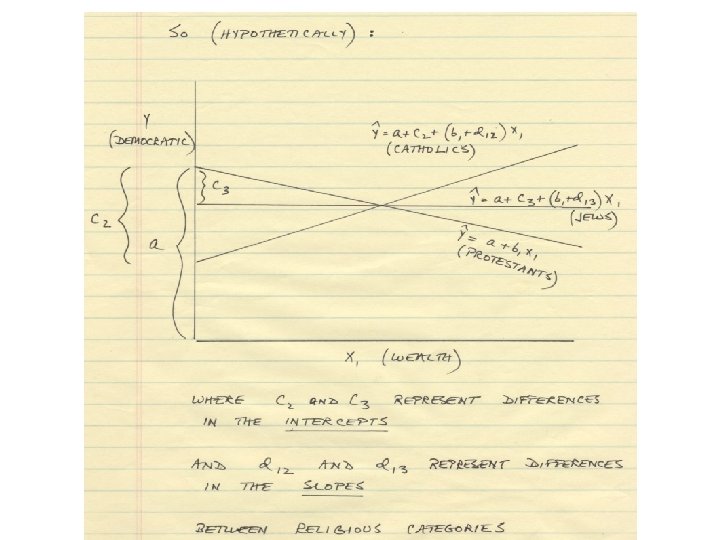 SO (HYPOTHETICALLY) :
Y
(DEMOCRATIC)
Ŷ = a + C₂ + (b₁ + d₁₂) X₁
(CATHOLICS)
C₃
Ŷ = a + C₃ + (b₁ + d₁₃) X₁
(JEWS)
C₂
a
Ŷ = a + b₁ X₁
(PROTESTANTS)
X₁ (WEALTH)
WHERE C₂ AND C₃ REPRESENT DIFFERENCES
IN THE INTERCEPTS
AND d₁₂ AND d₁₃ REPRESENT DIFFERENCES
IN THE SLOPES
BETWEEN RELIGIOUS CATEGORIES